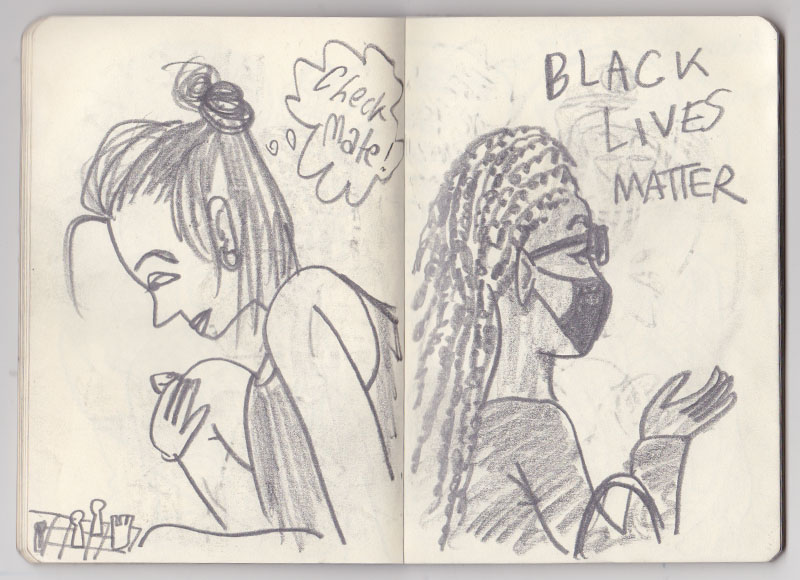 Check
Mate!
BLACK
LIVES
MATTER